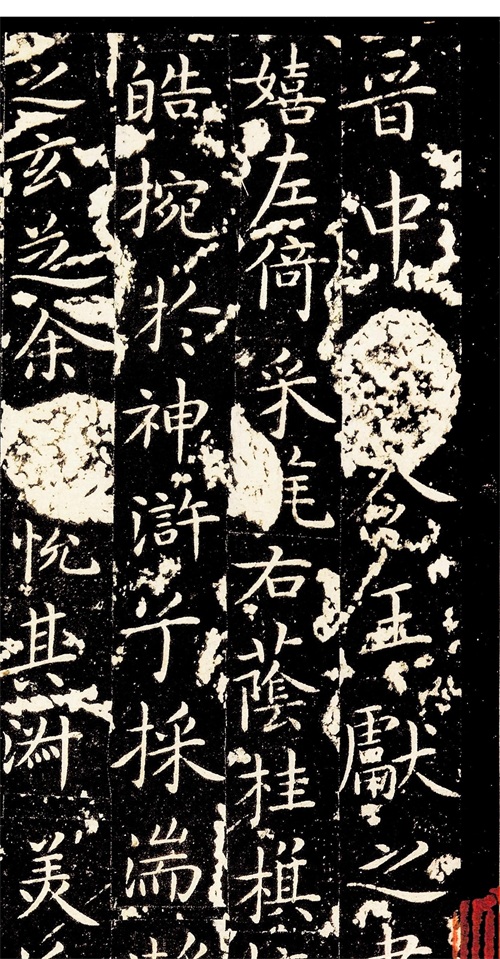 晉中令王獻之書
嬉左倚采旄右蔭桂棋
皓捥於神滸兮採湍
之玄芝余悅其淋美